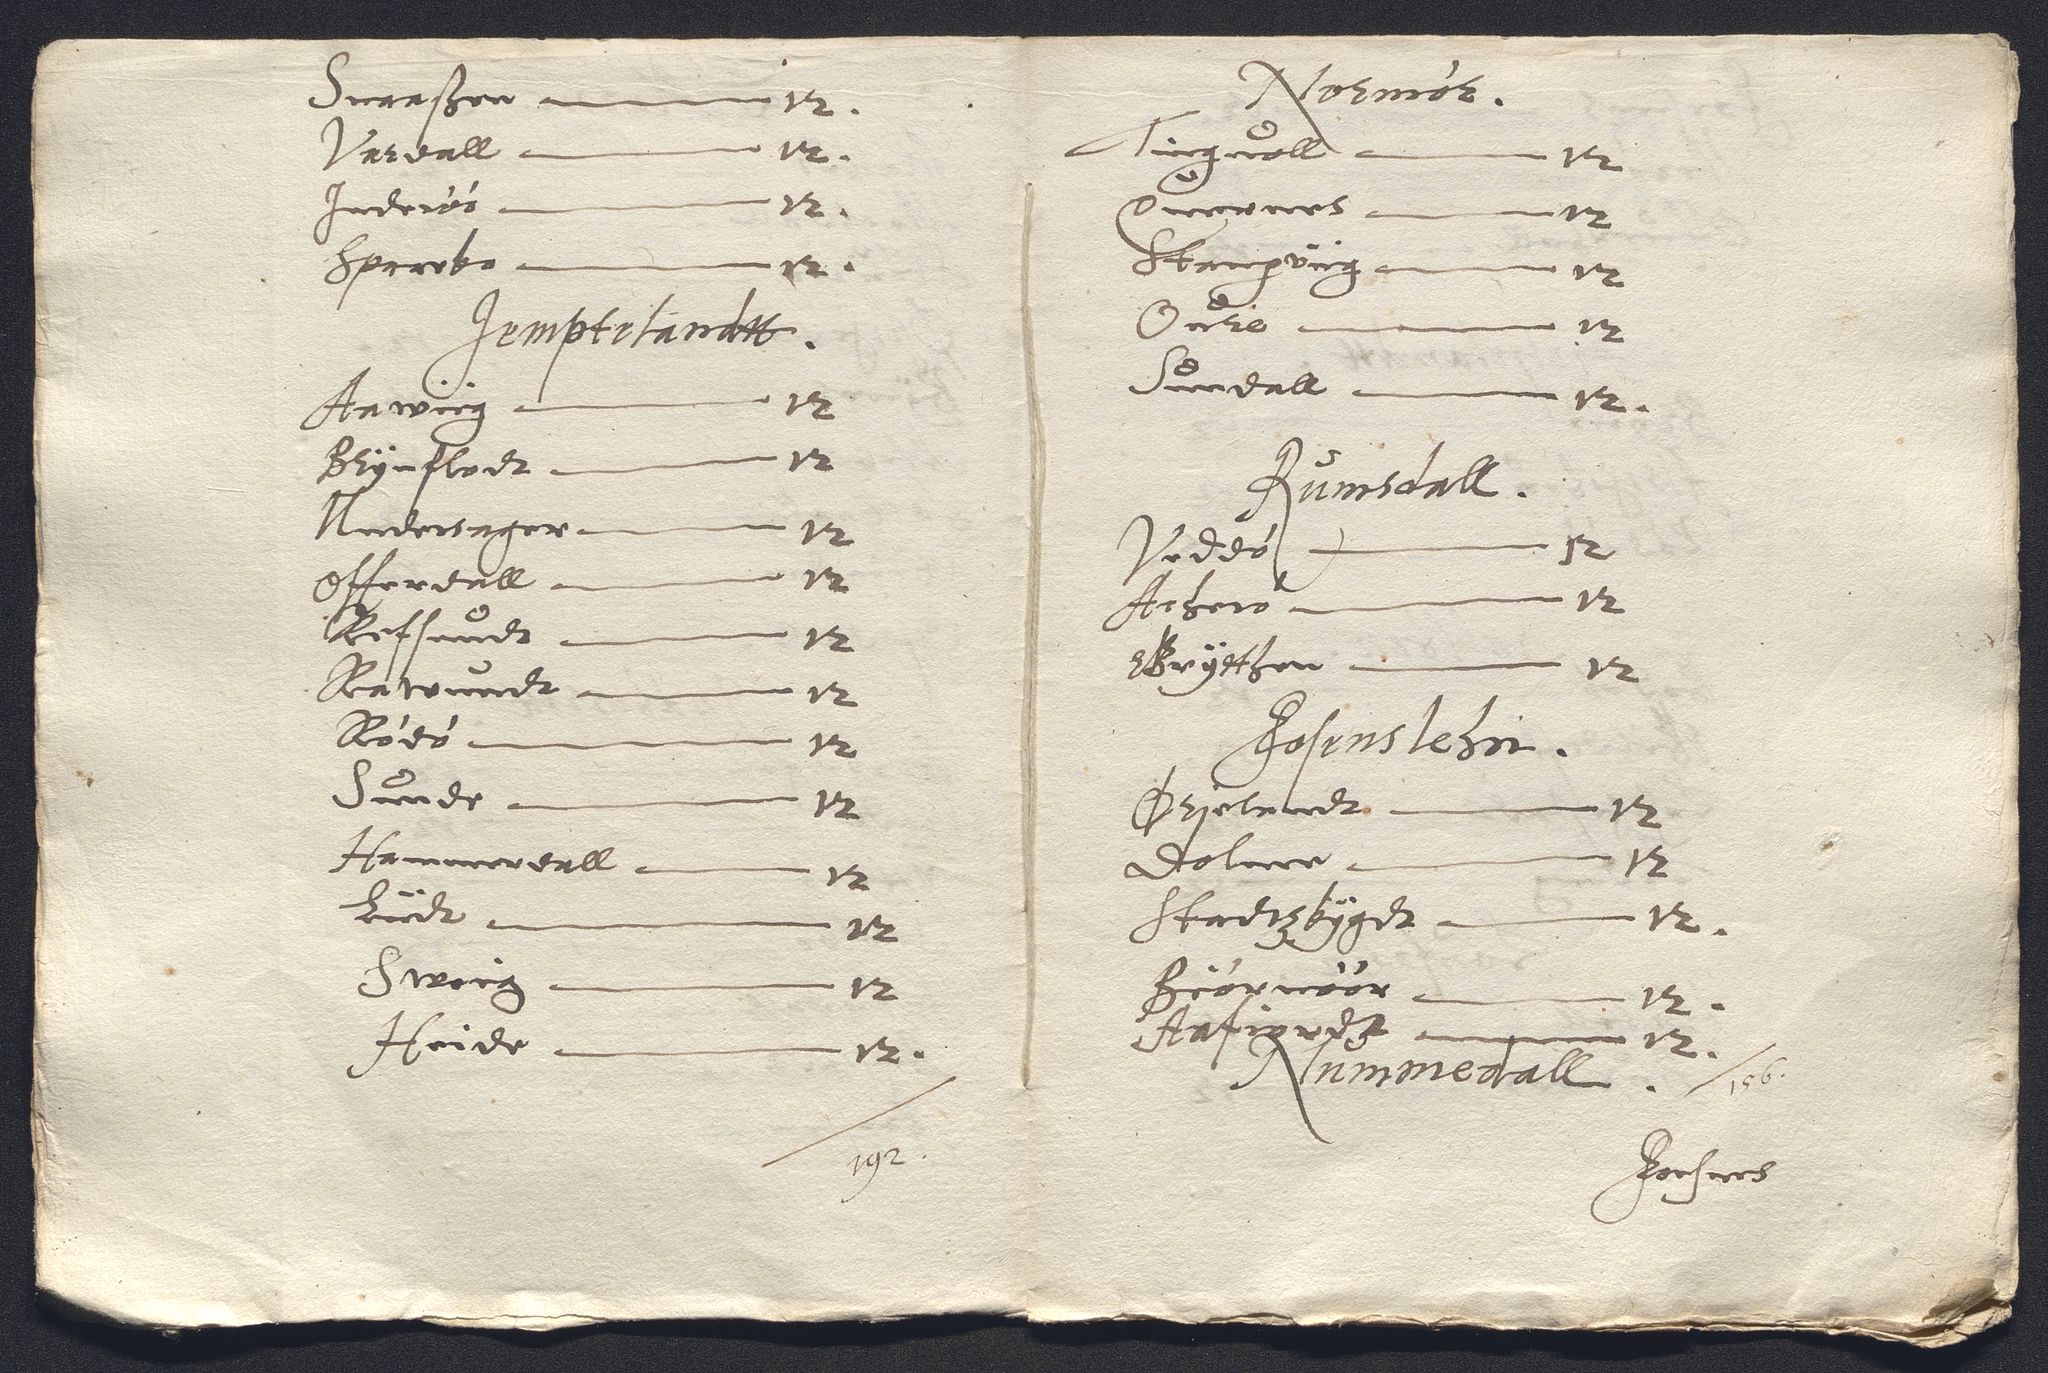 Snaaßen 12.
Værdall 12.
Inderöö 12.
Sparebo 12.
Jempteland​tt.
Aawiig 12
Brÿnflodt 12
Undersager 12
Offerdall 12
Refsundt 12
Rawundt 12
Rödö 12
Sunde 12
Hammerdall 12
Liidt 12
Sweig 12
Heide 12.
192.
Normör.
Tingwoll 12
Quernes 12
Stangviig 12
Ourie 12
Sundall 12.
Rumsdall.
Veddö 12
Acherö 12
Grytthen 12
Fosens lehn.
Ørjelandt 12
Dolmee 12
Stadtzbÿgdt 12.
Biörnöör 12.
Aafiordt 12.
Nummedall. 156.
Foesnes